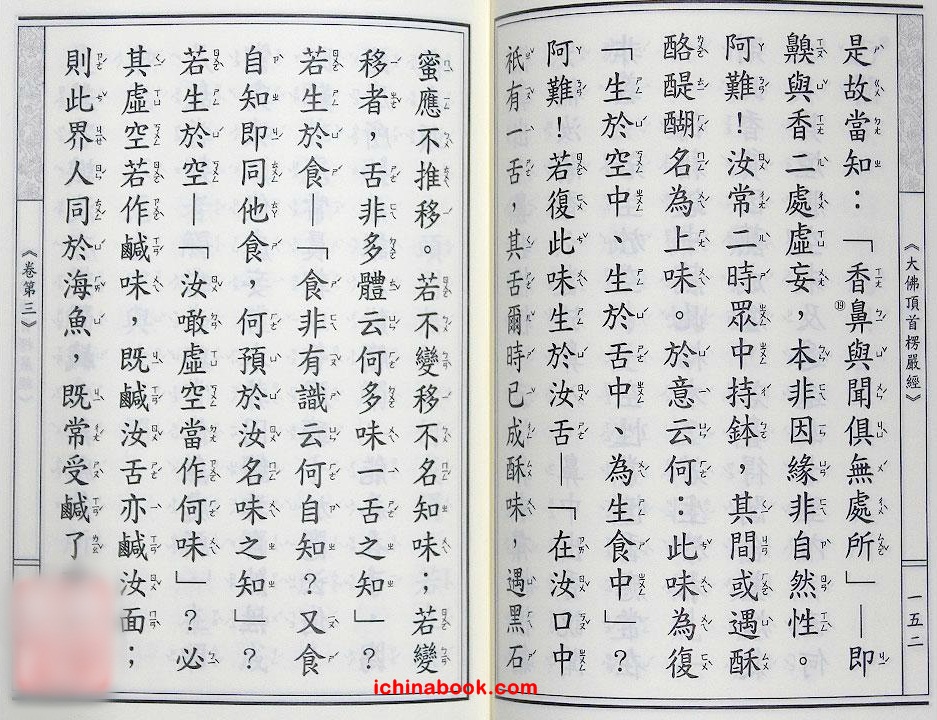 《大佛頂首楞嚴經》
一五二
是故當知：「香⑲鼻與聞俱無處所」——即
齅與香二處虛妄，本非因緣非自然性。
阿難！汝常二時眾中持鉢，其間或遇酥
酪醍醐名為上味。於意云何：此味為復
——生於空中、生於舌中、為生食中」？
阿難！若復此味生於汝舌——「在汝口中
祇有一舌，其舌爾時已成酥味，遇黑石
蜜應不推移。若不變移不名知味；若變
移者，舌非多體云何多味一舌之知」？
若生於食——「食非有識云何自知？又食
自知即同他食，何預於汝名味之知」？
若生於空——汝噉虛空當作何味」？必
其虛空若作鹹味，既鹹汝舌亦鹹汝面；
則此界人同於海魚，既常受鹹了
《卷第三》
ichinabook.com